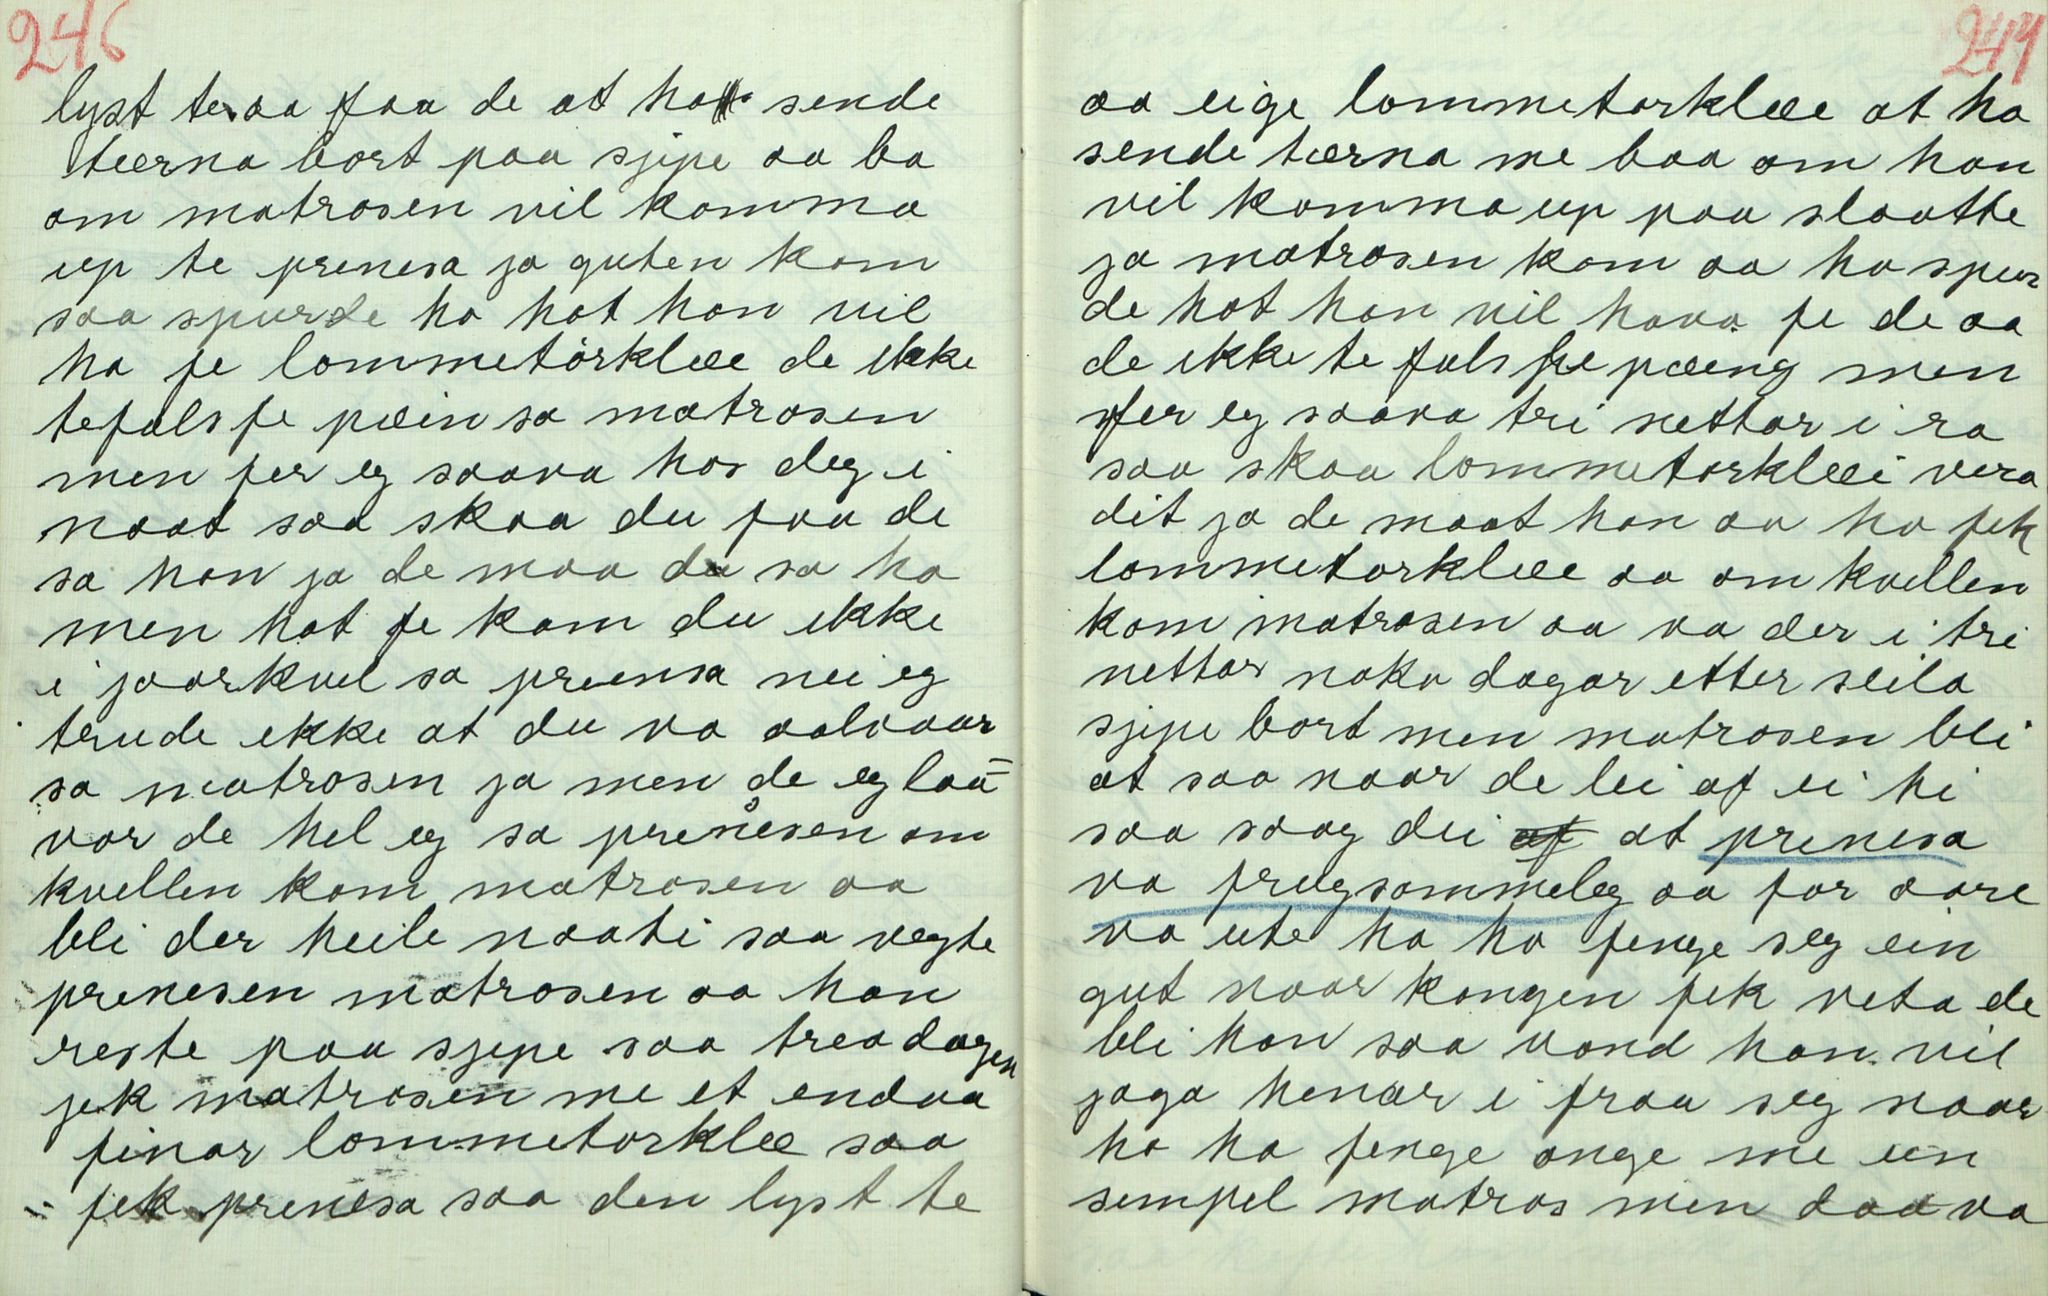 246
lyst te aa faa de at ho sende
tærna bort paa sjipe aa ba
om matrosen vil komma
up te prinesa ja guten kom
saa spurde ho hot han vil
ha fe lommetörklee de ikke
tefals fe pæin sa matrosen
men fer eg saava hos deg i
naat saa skaa du faa de
sa han ja de maa du sa ho
men hot fe kom du ikke
i jaarkvel sa prinesa nei eg
trude ikke at du va aalvaar
sa matrosen ja men de eg laa-
var de hel eg sa prinesen om
kvellen kom matrosen aa
blei der heile naati saa vegte
prinesen matrosen aa han
reste paa sjipe saa trea dagen
jek matrosen me et endaa
finar lommetorklee saa
fek prinesa saa den lyst te
247
aa eige lommetorklee at ho
sende tærna me baa om han
vil komma up paa slaatte
ja matrosen kom aa ho spur
de hot han vil hava fe de aa
de ikke te fals fe pæing men
fer eg saava tri nettar i ra
saa skaa lommetorkleei vera
dit ja de maat han aa ho fek
lommetorklee aa om kvellen
kom matrosen aa va der i tri
nettar noko dagar etter seila
sjipe bort men matrosen blei
at saa naar de lei af ei hi
saa saag dei af at prinesa
va frugsommeleg aa for aare
va ute ha ho fenge seg ein
gut naar kongen fek veta de
blei han saa vond han vil
jaga henar i fraa seg naar
ho ha fenge onge me ein
sempel matros men daa va